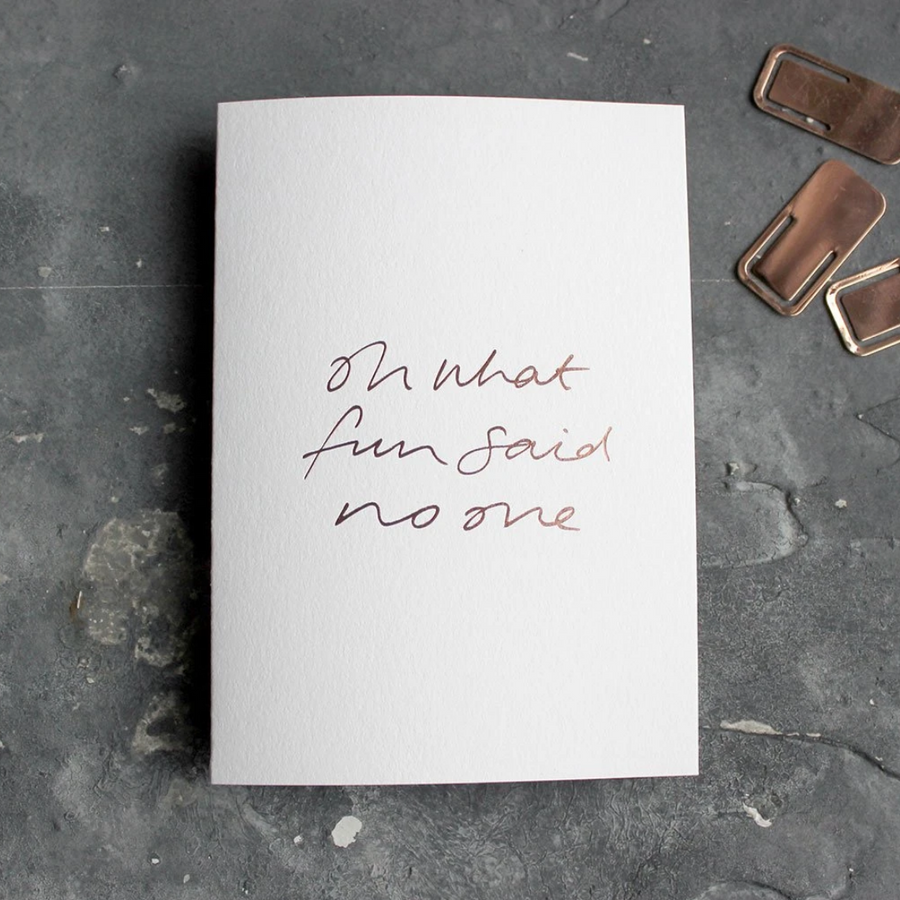 oh what
fun said
no one